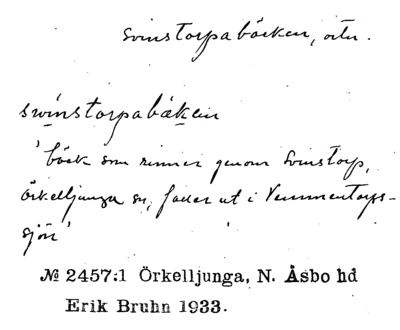 Svinstorpabäcken, ortn.
swinstorpabäken
'bäck som rinner genom Svinstorp,
Örkelljunga sn, faller ut i Vemmentorps-
sjön'
№ 2457:1 Örkelljunga, N. Åsbo hd
Erik Bruhn 1933.